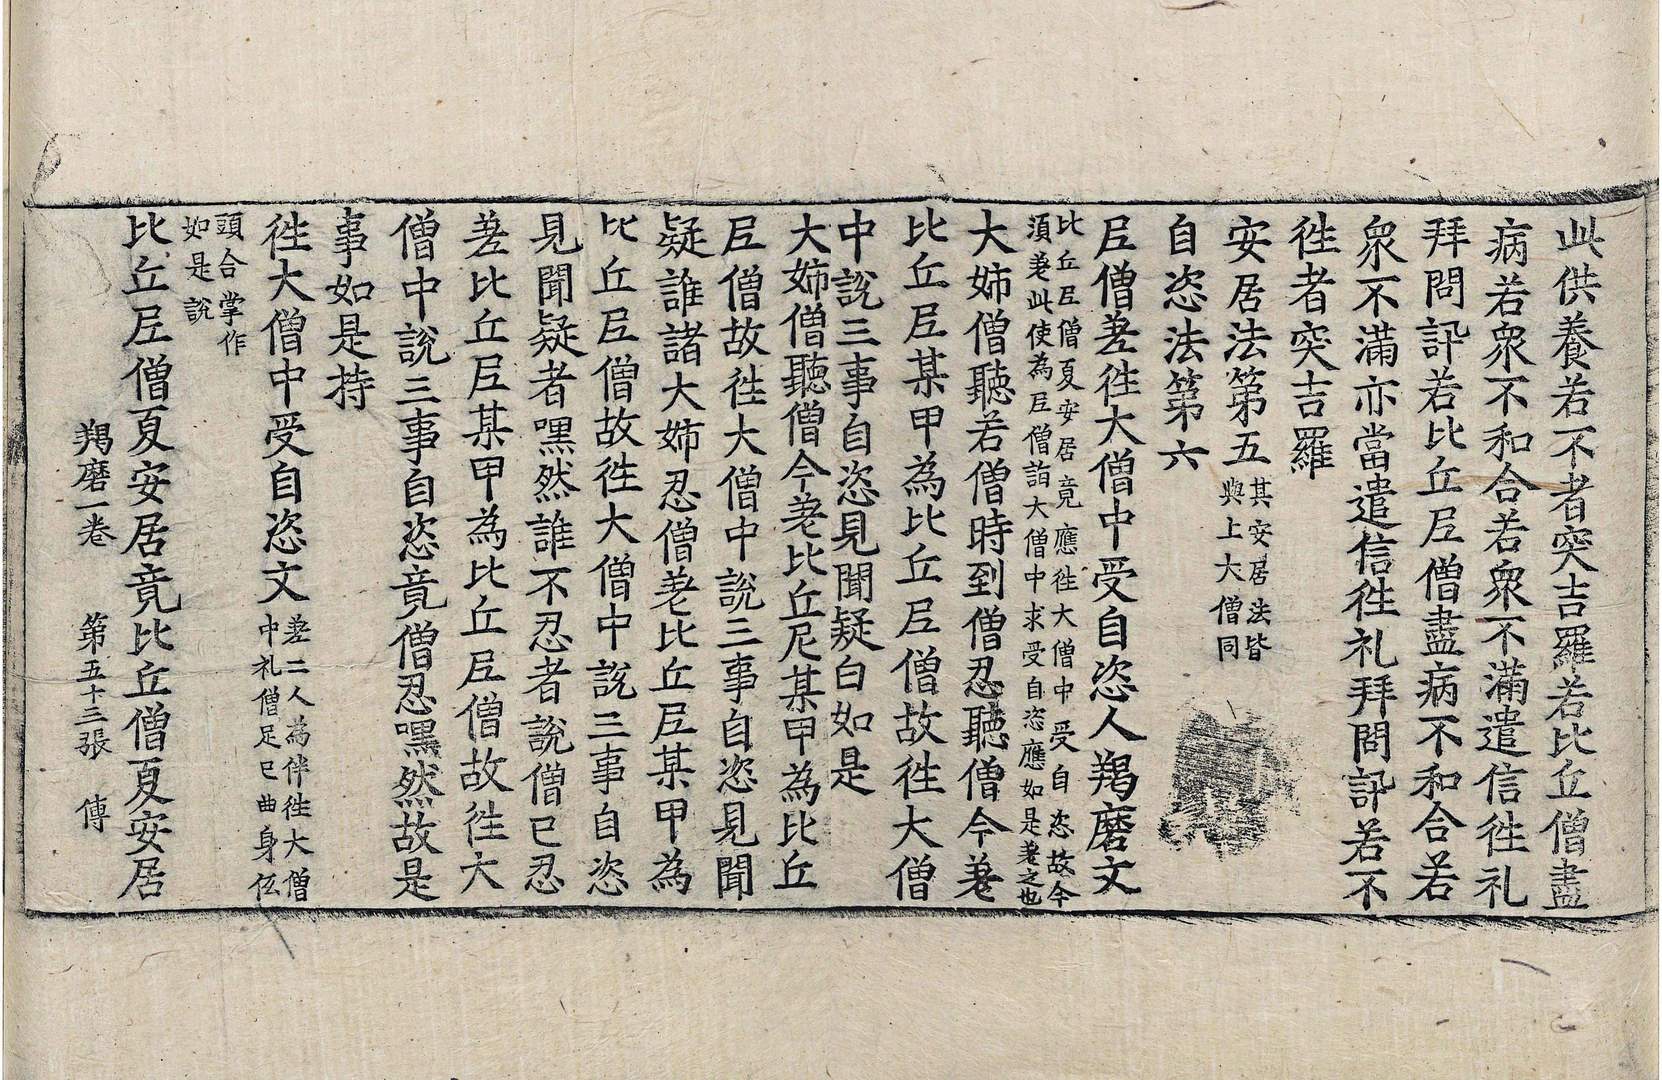 此供養若不者突吉羅若比丘僧盡
病若衆不和合若衆不滿遣信徃礼
拜問訊若比丘尼僧盡病不和合若
衆不滿亦當遣信徃礼拜問訊若不
徃者突吉羅
安居法第五其安居法皆
與上大僧同
自恣法第六
尼僧差徃大僧中受自恣人羯磨文
比丘尼僧夏安居竟應徃大僧中受自恣故今
須差此使為尼僧詣大僧中求受自恣應如是差之也
大姉僧聽若僧時到僧忍聽僧今差
比丘尼某甲為比丘尼僧故徃大僧
中說三事自恣見聞疑白如是
大姉僧聽僧今差比丘尼某甲為比丘
尼僧故徃大僧中說三事自恣見聞
疑誰諸大姉忍僧差比丘尼某甲為
比丘尼僧故徃大僧中說三事自恣
見聞疑者嘿然誰不忍者說僧已忍
差比丘尼某甲為比丘尼僧故徃大
僧中說三事自恣竟僧忍嘿然故是
事如是持
徃大僧中受自恣文差二人為伴徃大僧
中礼僧足已曲身伍
頭合掌作
如是說
比丘尼僧夏安居竟比丘僧夏安居
羯磨一卷 第五十三張 傳